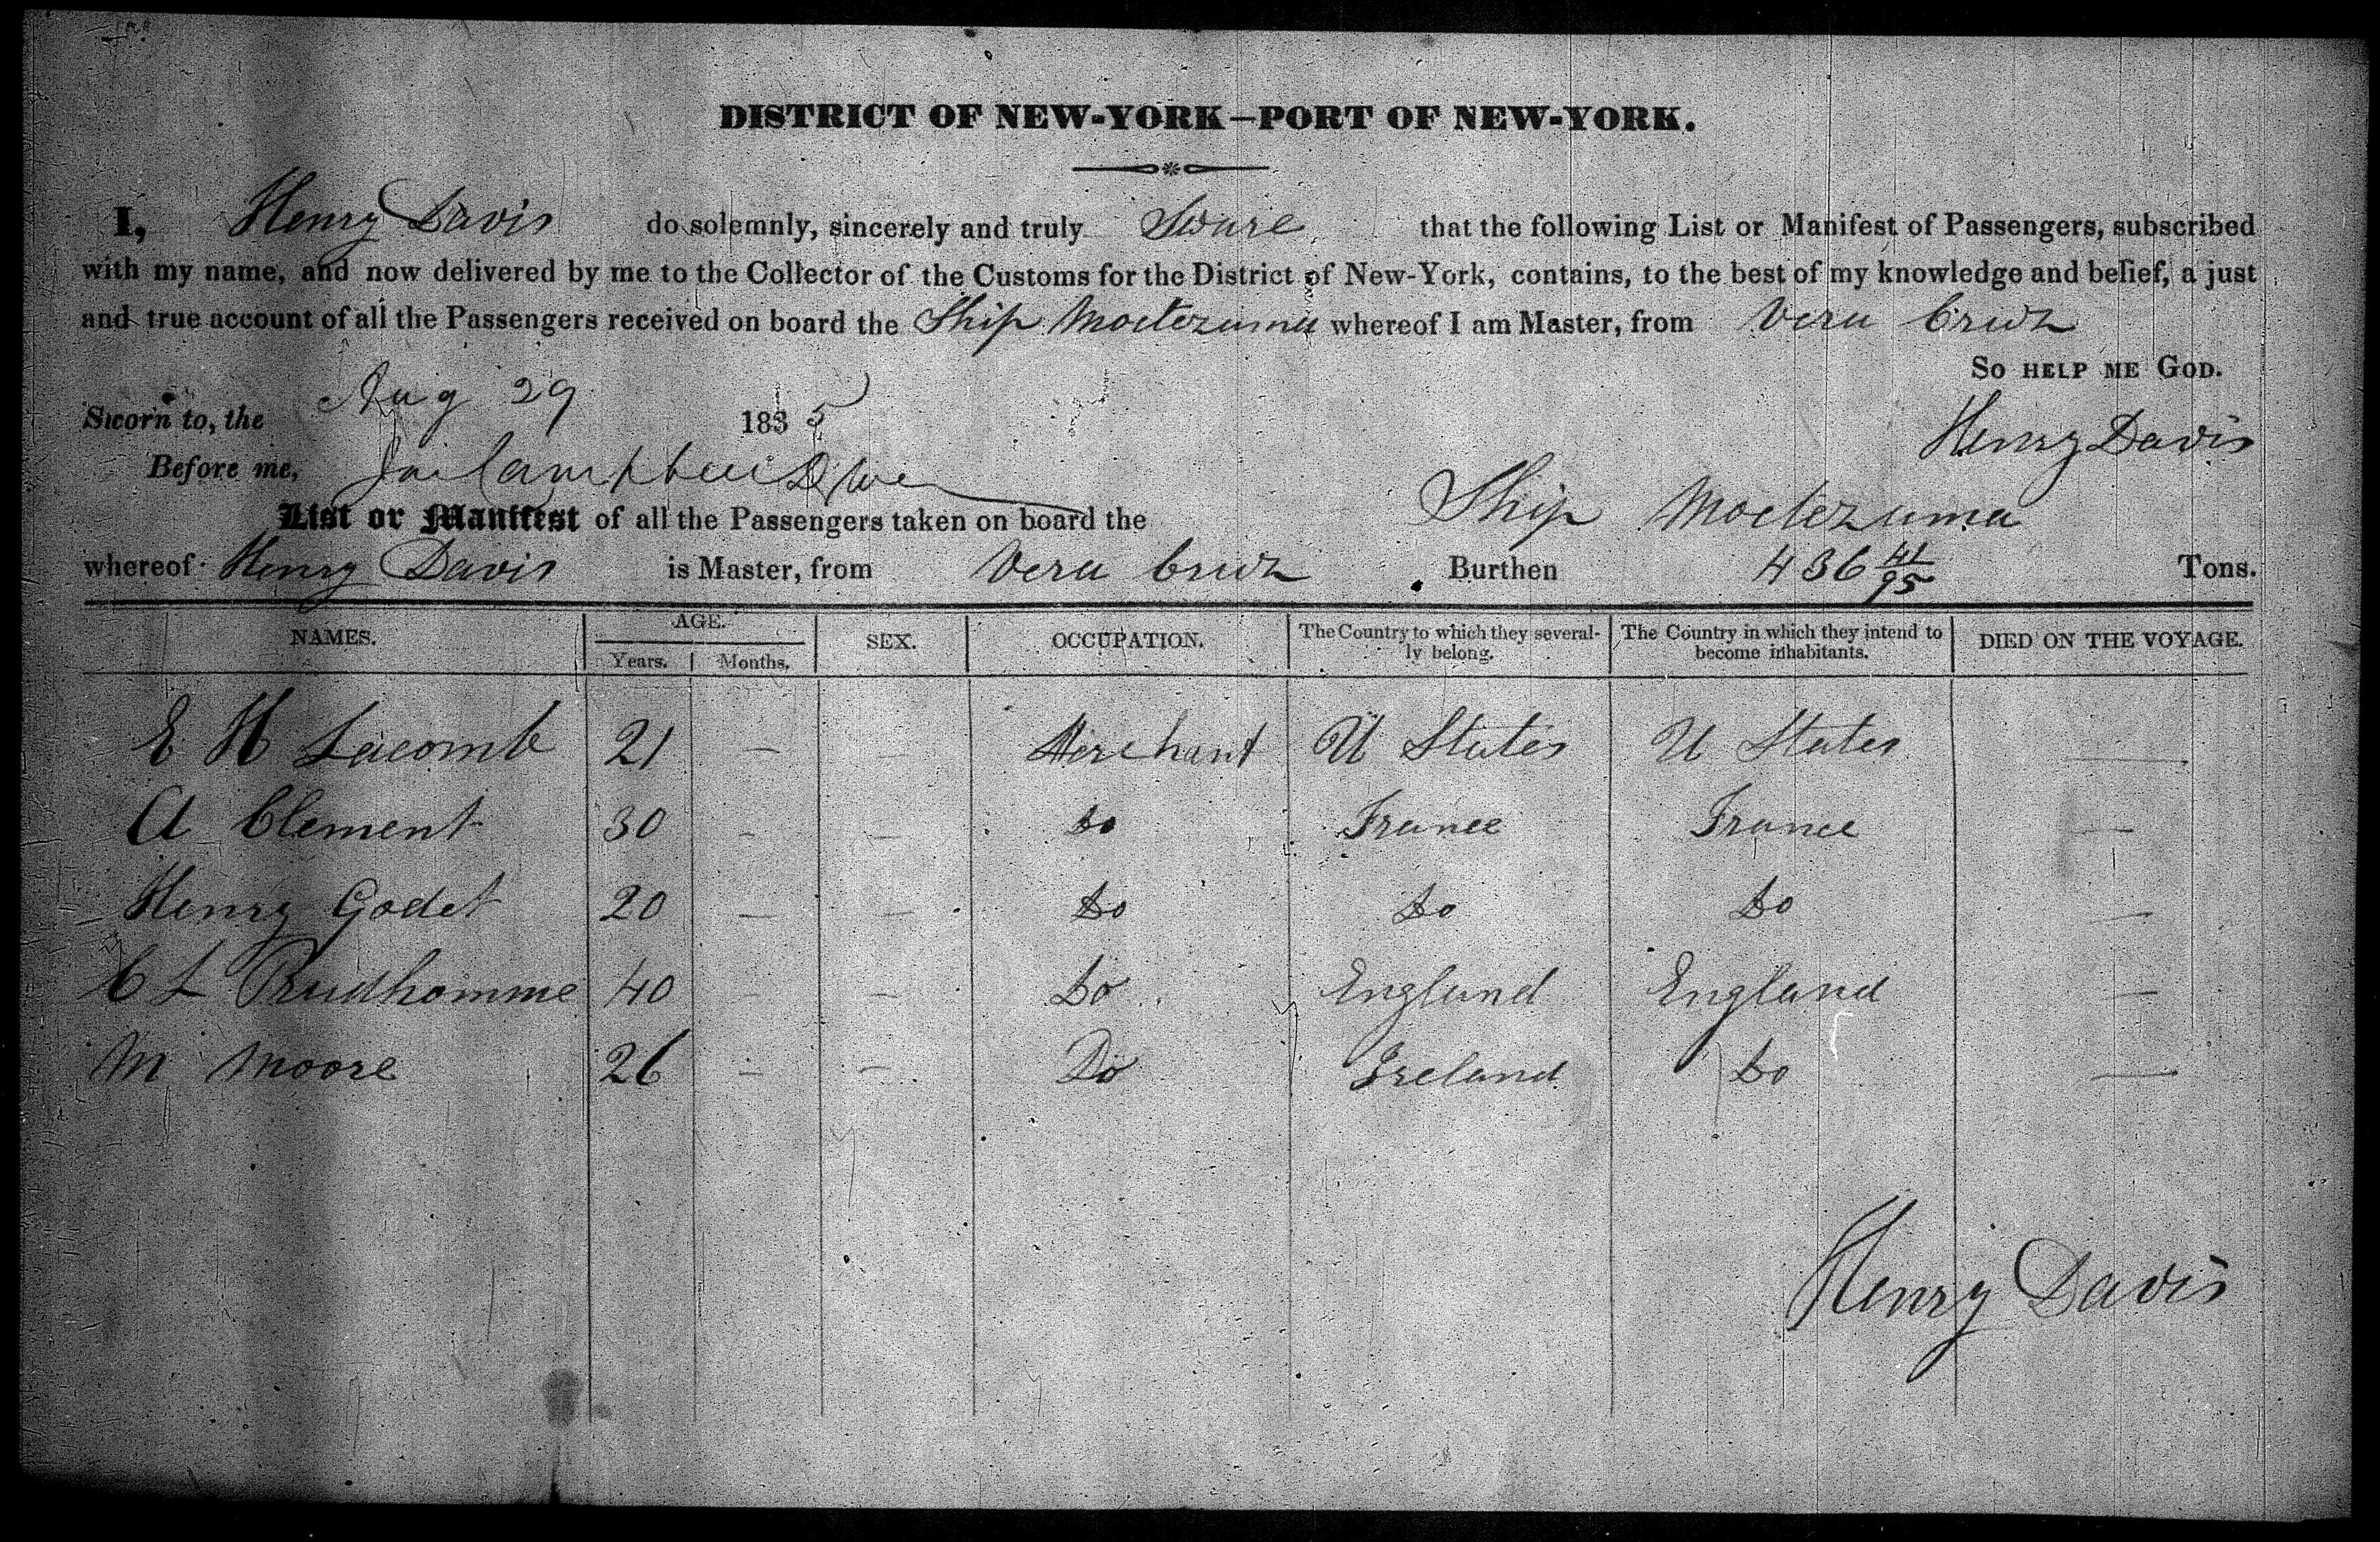 DISTRICT OF NEW-YORK—PORT OF NEW-YORK.
I, Henry Davis do solemnly, sincerely and truly Sware that the following List or Manifest of Passengers, subscribed
with my name, and now delivered by me to the Collector of the Customs for the District of New-York, contains, to the best of my knowledge and belief, a just
and true account of all the Passengers received on board the Ship Moctezuma whereof I am Master, from Vera Cruz
So HELP ME GOD.
Sworn to, the Aug 29 1835 Henry Davis
Before me, Campbell
List or Manifest of all the Passengers taken on board the Ship Moctezuma
whereof Henry Davis is Master, from Vera Cruz Burthen 436 41/95 Tons.
NAMES. AGE. Years. Months. SEX. OCCUPATION. The Country to which they severally belong. The Country in which they intend to become inhabitants. DIED ON THE VOYAGE.
E H Lacomb 21 — — Merchant U States U States —
A Clement 30 — — Do France France —
Henry Godet 20 — — Do Do Do —
C L Prudhomme 40 — — Do England England —
M Moore 26 — — Do Ireland Do —
Henry Davis